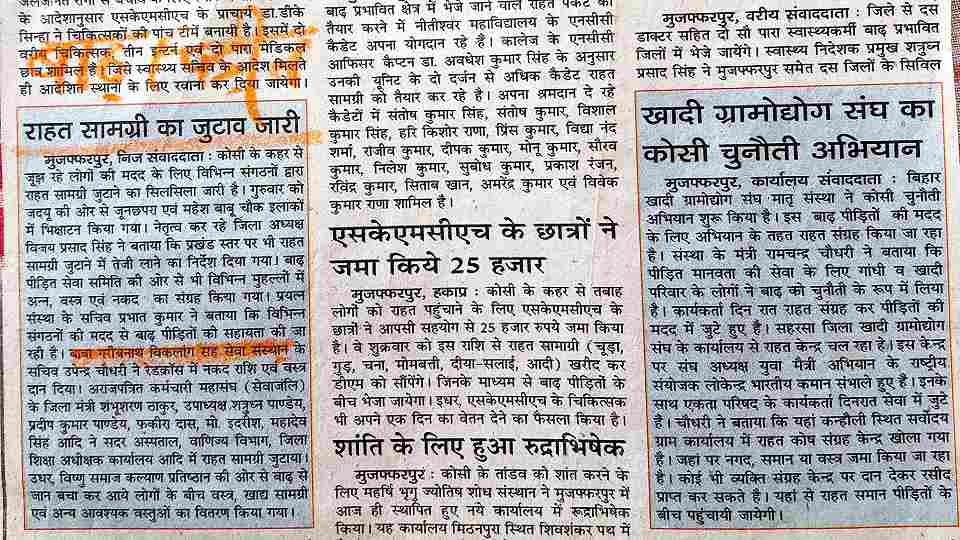 के आदेशानुसार एसकेएमसीएच के प्राचार्य डा.डीके
सिन्हा ने चिकित्सकों की पांच टीमें बनायी है। इसमें दो
वरीय चिकित्सक, तीन इन्टर्न एवं दो पारा मेडिकल
छात्र शामिल है। जिसे स्वास्थ्य सचिव के आदेश मिलते
ही आदेशित स्थानों के लिए रवाना कर दिया जायेगा।
राहत सामग्री का जुटाव जारी
मुजफ्फरपुर, निज संवाददाता : कोसी के कहर से
जूझ रहे लोगों की मदद के लिए विभिन्न संगठनों द्वारा
राहत सामग्री जुटाने का सिलसिला जारी है। गुरुवार को
जदयू की ओर से जूनछपरा एवं महेश बाबू चौक इलाकों
में भिक्षाटन किया गया। नेतृत्व कर रहे जिला अध्यक्ष
विजय प्रसाद सिंह ने बताया कि प्रखंड स्तर पर भी राहत
सामग्री जुटाने में तेजी लाने का निर्देश दिया गया। बाढ़
पीड़ित सेवा समिति की ओर से भी विभिन्न मुहल्लों में
अन्न, वस्त्र एवं नकद का संग्रह किया गया। प्रयत्न
संस्था के सचिव प्रभात कुमार ने बताया कि विभिन्न
संगठनों की मदद से बाढ़ पीड़ितों की सहायता की जा
रही है। बाबा गरीबनाथ विकलांग सह सेवा संस्थान के
सचिव उपेन्द्र चौधरी ने रेडक्रॉस में नकद राशि एवं वस्त्र
दान दिया। अराजपत्रित कर्मचारी महासंघ (सेवांजलि)
के जिला मंत्री शंभूशरण ठाकुर, उपाध्यक्ष शत्रुघ्न पाण्डेय,
प्रदीप कुमार पाण्डेय, फकीरा दास, मो. इदरीश, महादेव
सिंह आदि ने सदर अस्पताल, वाणिज्य विभाग, जिला
शिक्षा अधीक्षक कार्यालय आदि में राहत सामग्री जुटाया।
उधर, विष्णु समाज कल्याण प्रतिष्ठान की ओर से बाढ़ से
जान बचा कर आये लोगों के बीच वस्त्र, खाद्य सामग्री
एवं अन्य आवश्यक वस्तुओं का वितरण किया गया।
बाढ़ प्रभावित क्षेत्र में भेजे जाने वाले राहत पैकेट को
तैयार करने में नीतीश्वर महाविद्यालय के एनसीसी
कैडेट अपना योगदान रहे हैं। कालेज के एनसीसी
आफिसर कैप्टन डा. अवधेश कुमार सिंह के अनुसार
उनकी यूनिट के दो दर्जन से अधिक कैडेट राहत
सामग्री को तैयार कर रहे है। अपना श्रमदान दे रहे
कैडेटों में संतोष कुमार सिंह, संतोष कुमार, विशाल
कुमार सिंह, हरि किशोर राणा, प्रिंस कुमार, विद्या नंद
शर्मा, राजीव कुमार, दीपक कुमार, मोनू कुमार, सौरव
कुमार, निलेश कुमार, सुबोध कुमार, प्रकाश रंजन,
रविंद्र कुमार, सिताब खान, अमरेंद्र कुमार एवं विवेक
कुमार राणा शामिल है।
एसकेएमसीएच के छात्रों ने
जमा किये 25 हजार
मुजफ्फरपुर, हकाप्र : कोसी के कहर से तबाह
लोगों को राहत पहुंचाने के लिए एसकेएमसीएच के
छात्रों ने आपसी सहयोग से 25 हजार रुपये जमा किया
है। वे शुक्रवार को इस राशि से राहत सामाग्री (चूड़ा,
गुड़, चना, मोमबत्ती, दीया-सलाई, आदी) खरीद कर
डीएम को सौंपेंगे। जिनके माध्यम से बाढ़ पीड़ितों के
बीच भेजा जायेगा। इधर, एसकेएमसीएच के चिकित्सक
भी अपने एक दिन का वेतन देने का फैसला किया है।
शांति के लिए हुआ रुद्राभिषेक
मुजफ्फरपुर : कोसी के तांडव को शांत करने के
लिए महर्षि भृगु ज्योतिष शोध संस्थान ने मुजफ्फरपुर में
आज ही स्थापित हुए नये कार्यालय में रूद्राभिषेक
किया। यह कार्यालय मिठनपुरा स्थित शिवशंकर पथ में
मुजफ्फरपुर, वरीय संवाददाता : जिले से दस
डाक्टर सहित दो सौ पारा स्वास्थ्यकर्मी बाढ़ प्रभावित
जिलों में भेजे जायेंगे। स्वास्थ्य निदेशक प्रमुख शत्रुघ्न
प्रसाद सिंह ने मुजफ्फरपुर समेत दस जिलों के सिविल
खादी ग्रामोद्योग संघ का
कोसी चुनौती अभियान
मुजफ्फरपुर, कार्यालय संवाददाता : बिहार
खादी ग्रामोद्योग संघ मातृ संस्था ने कोसी चुनौती
अभियान शुरू किया है। इस बाढ़ पीड़ितों की मदद
के लिए अभियान के तहत राहत संग्रह किया जा रहा
है। संस्था के मंत्री रामचन्द्र चौधरी ने बताया कि
पीड़ित मानवता की सेवा के लिए गांधी व खादी
परिवार के लोगों ने बाढ़ को चुनौती के रूप में लिया
है। कार्यकर्ता दिन रात राहत संग्रह कर पीड़ितों की
मदद में जुटे हुए है। सहरसा जिला खादी ग्रामोद्योग
संघ के कार्यालय से राहत केन्द्र चल रहा है। इस केन्द्र
पर संघ अध्यक्ष युवा मैत्री अभियान के राष्ट्रीय
संयोजक लोकेन्द्र भारतीय कमान संभाले हुए है। इनके
साथ एकता परिषद के कार्यकर्ता दिनरात सेवा में जुटे
है। चौधरी ने बताया कि यहां कन्हौली स्थित सर्वोदय
ग्राम कार्यालय में राहत कोष संग्रह केन्द्र खोला गया
है। जहां पर नगद, समान या वस्त्र जमा किया जा रहा
है। कोई भी व्यक्ति संग्रह केन्द्र पर दान देकर रसीद
प्राप्त कर सकते है। यहां से राहत समान पीड़ितों के
बीच पहुंचायी जायेगी।